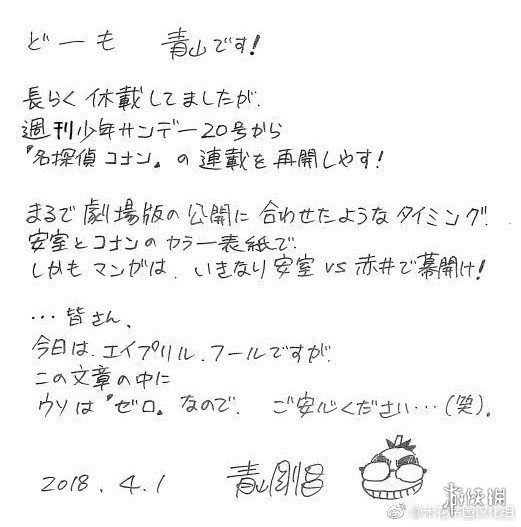 どーも 青山です！
長らく休載してましたが、
週刊少年サンデー20号から
『名探偵コナン』の連載を再開しやす！
まるで劇場版の公開に合わせたようなタイミング、
安室とコナンのカラー表紙で、
しかもマンガは、いきなり安室 vs 赤井で幕開け！
…皆さん、
今日は、エイプリル、フールですが、
この文章の中に
ウソは『ゼロ』なので、ご安心ください…（笑）。
2018.4.1 青山剛昌
游侠网